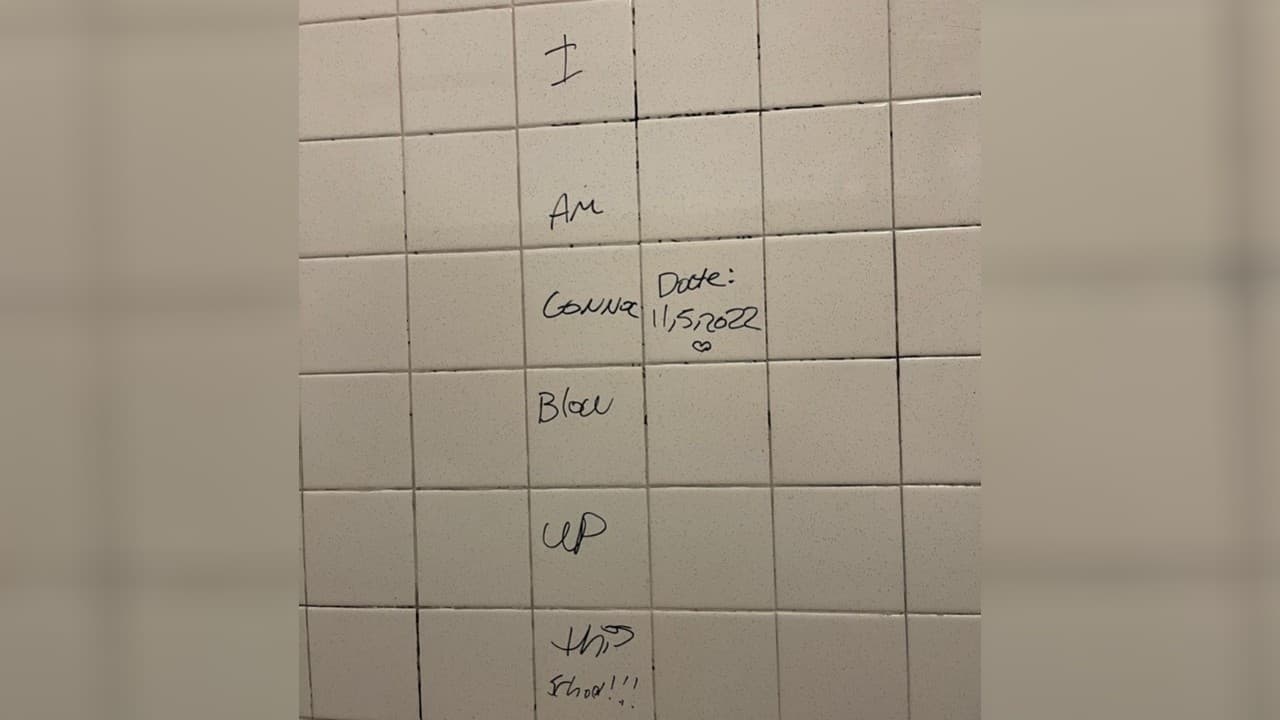 I
AM
GONNA
Date:
11,5,2022
Blow
UP
this
School!!!